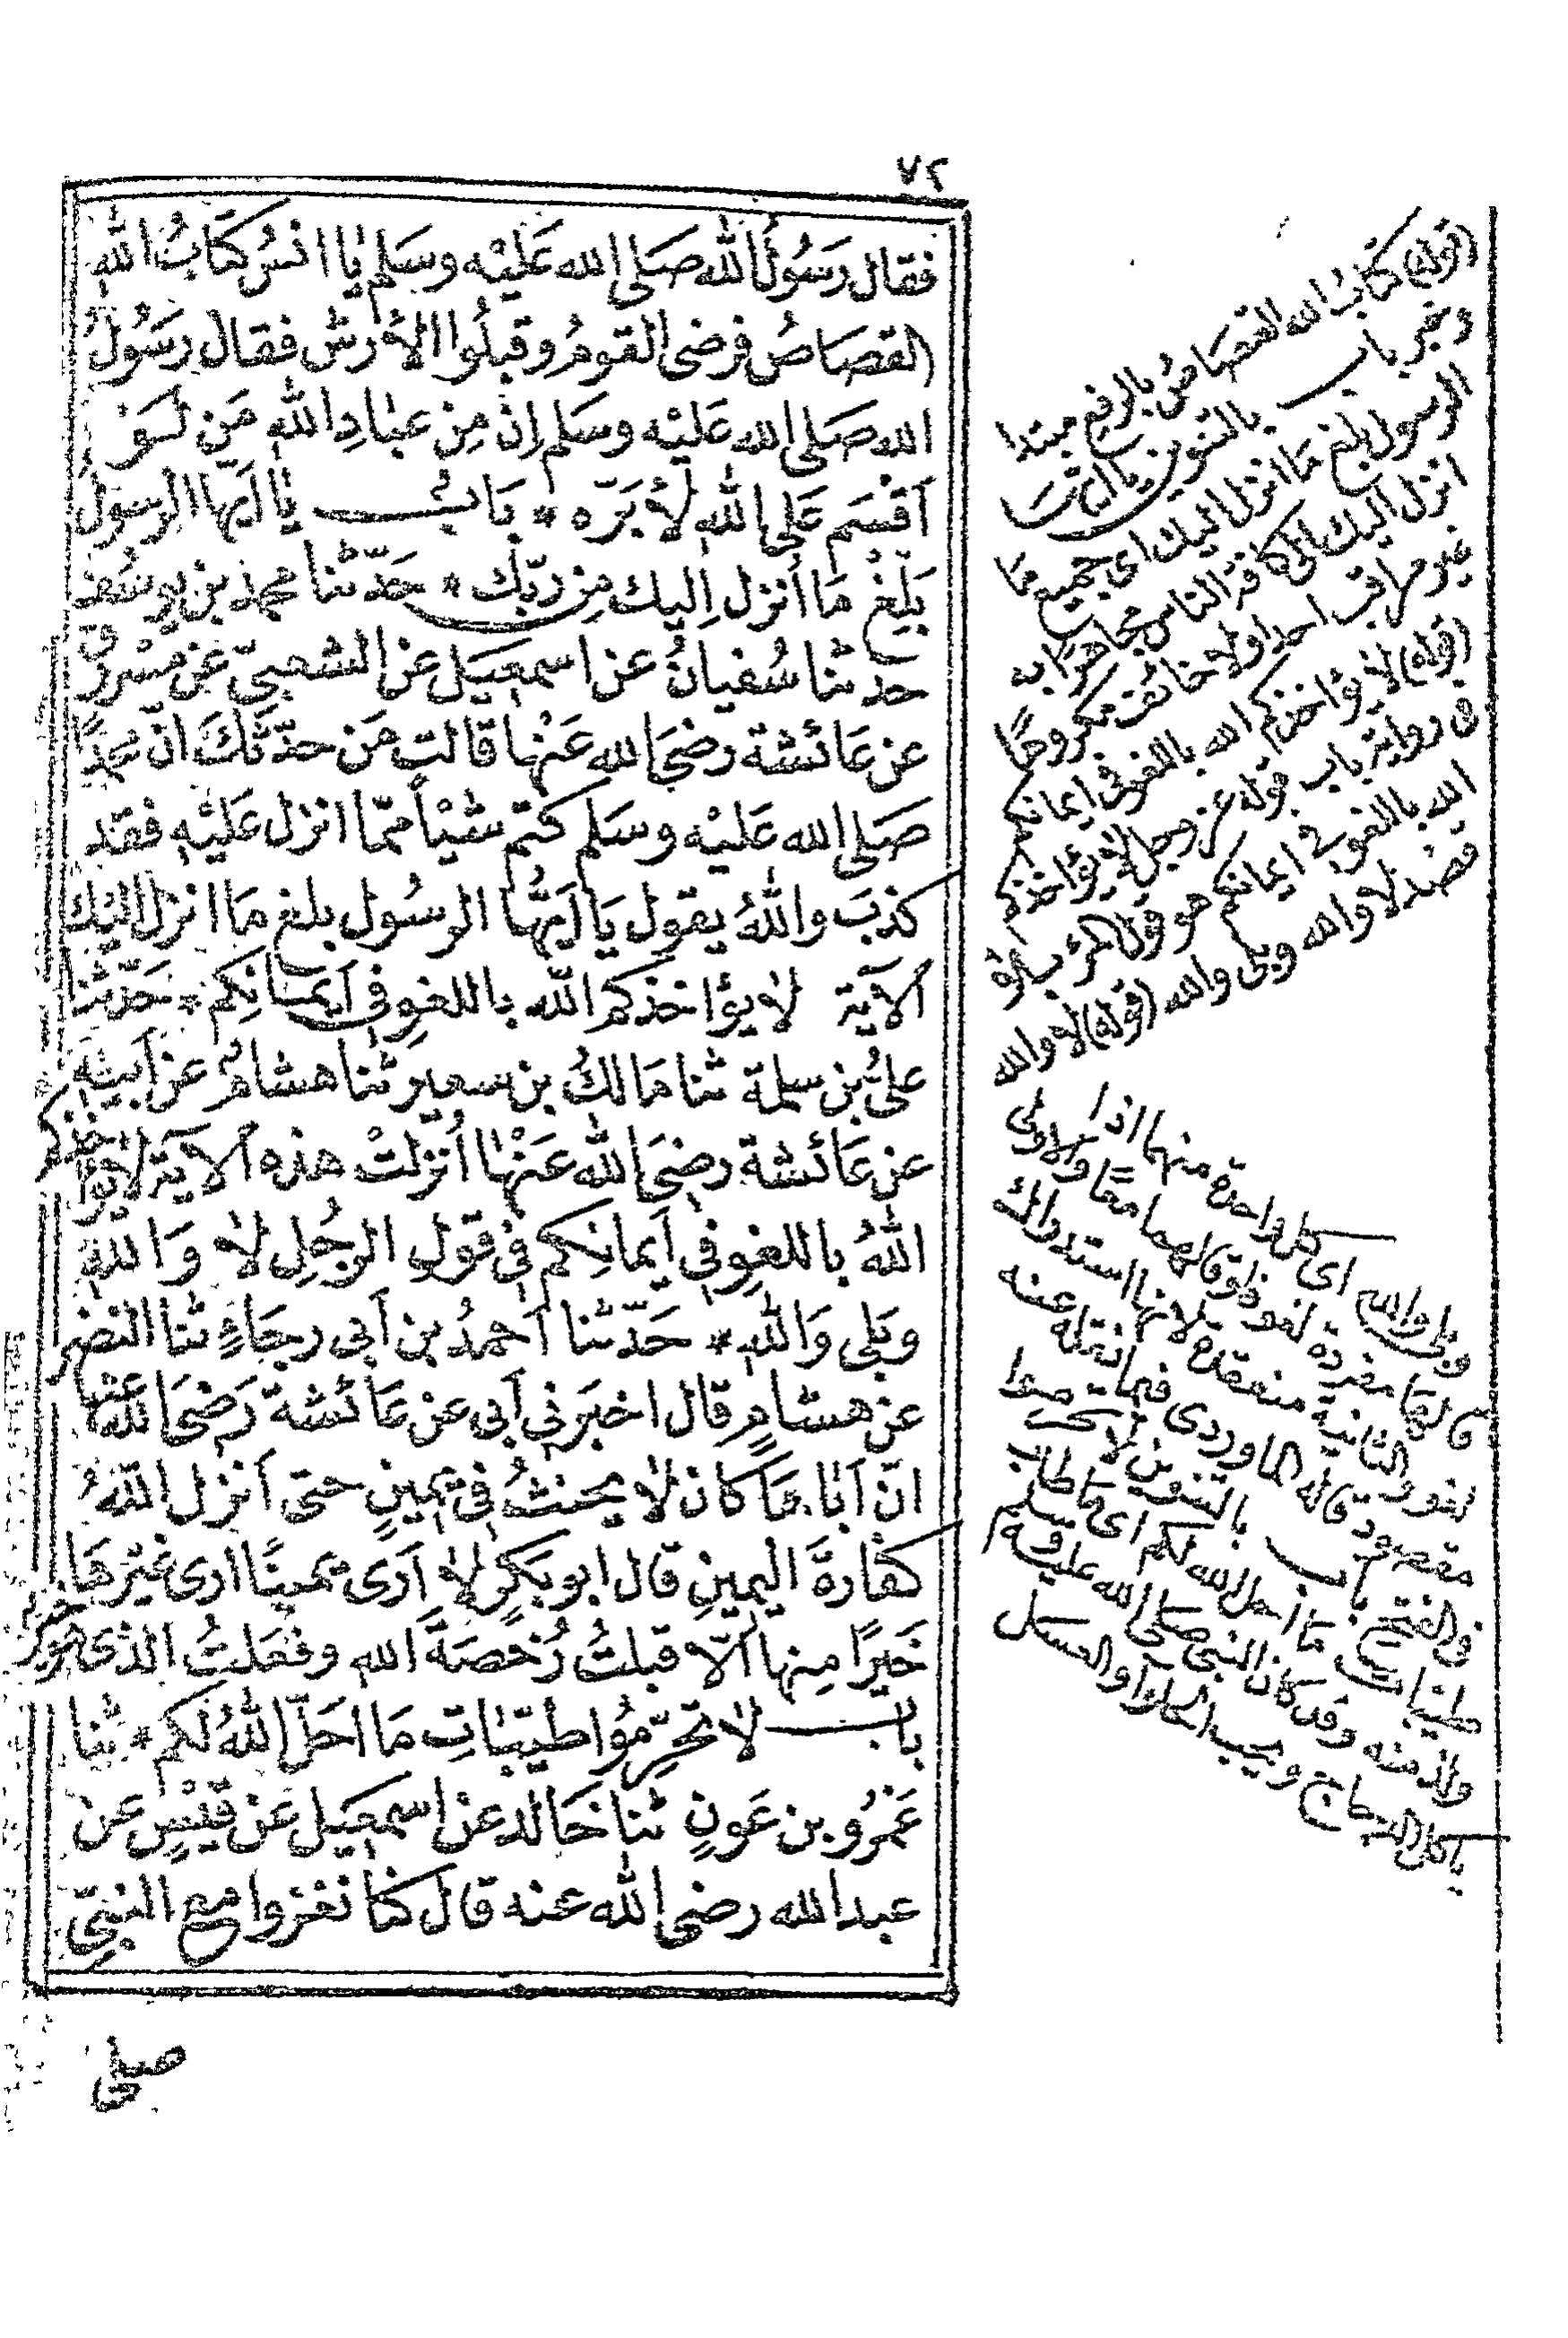 ٧٢
فقال رَسُولُ الله صَلى الله عَليْه وسَلم يٰا انسُ كتَابُ الله
القصَاصُ فرضى القومُ وقبلُوا الأرش فقال رَسُولُ
الله صَلى الله عَليْه وسَلم إنّ مِنْ عبَادِ الله مَن لَوْ
أقسَم عَلى الله لأبَرّه * بَابٌ يٰا أيّها الرسولُ
بَلّغْ مَا أنزل إليك مِن ربّك * حَدّثنا محمد بن يوسُف
حدثنا سُفيانُ عن اسمعيَل عن الشعبىّ عَن مسْروقٍ
عن عَائشة رضىَ الله عَنْها قالت مَن حدّثكَ انّ محمدًا
صَلى الله عَليْه وسَلم كتم شيْأ ممّا انزل عَليْه فقد
كذبَ واللهُ يقول يَا أيّهُا الرسُول بلغ مَا انزل اليْك
ألآية لا يؤاخذكم الله باللغوِ في أيمَانِكم * حَدّثنا
علىُّ بن سلمة ثنا مَالكُ بن سعيرٍ ثنا هشامٌ عن أبيْهِ
عن عَائشة رضىَ الله عَنْهٰا أُنزلتْ هذه ألآية لا يؤاخذكم
اللهُ باللغوِ في أيمانِكم في قول الرجُلِ لا وَاللهِ
وبَلى وَاللهِ * حَدّثنا أحمدُ بن أبى رجَاءٍ ثنا النضر
عن هشامٍ قال اخبَرنى أبى عن عَائشة رَضىَ الله عنها
انّ أبَاهَا كان لا يحنثُ في يمينٍ حتى أنزل اللهُ
كفارةَ اليمينِ قال ابو بَكرٍ لا أرَى يمينًا ارى غيْرهَا
خَيرًا مِنها ألّا قبلتُ رُخصَةَ الله وفعَلتُ الذى هُوَ خيرٌ
باب لا تحرّمُوا طيّبَاتِ مَا احَلّ اللهُ لكم * ثنا
عَمْرُو بن عَونٍ ثنا خَالد عن اسمعيَل عَن قيْسٍ عن
عبد الله رضى الله عنه قال كنا نغزوا مع النبىّ
صلى
(قوله) كتابُ الله القصَاصُ بالرفع مبتدا
وخبر باب بالتنوين يا أيها
الرسول بلغ مَا انزل اليك اى جميع مَا
انزل اليك الى كافة الناس مجاهرًا به
غير مراقب احدا ولا خائف مكروهًا
(قوله) لا يؤاخذكم الله باللغو في ايمانكم
في رواية باب قوله عز وجل لا يؤاخذكم
الله باللغو في ايمانكم هو قول المرء بلا
قصْد لا والله وبلى والله (قوله) لا والله
وبلى والله اى كل واحدة منها اذا
قالهَا مفردة لغو فلو قالهما معًا فالاولى
لغو والثانية منعقدة لانها استدراك
مقصود قاله الماوردى فيما نقله عنه
في الفتح باب بالتنوين لا تحرموا
طيبات مَا احل الله لكم اى مَا طاب
ولذ منه وقد كان النبى صلى الله عليه وسلم
ياكل الدجاج ويحب الحلوا والعسل